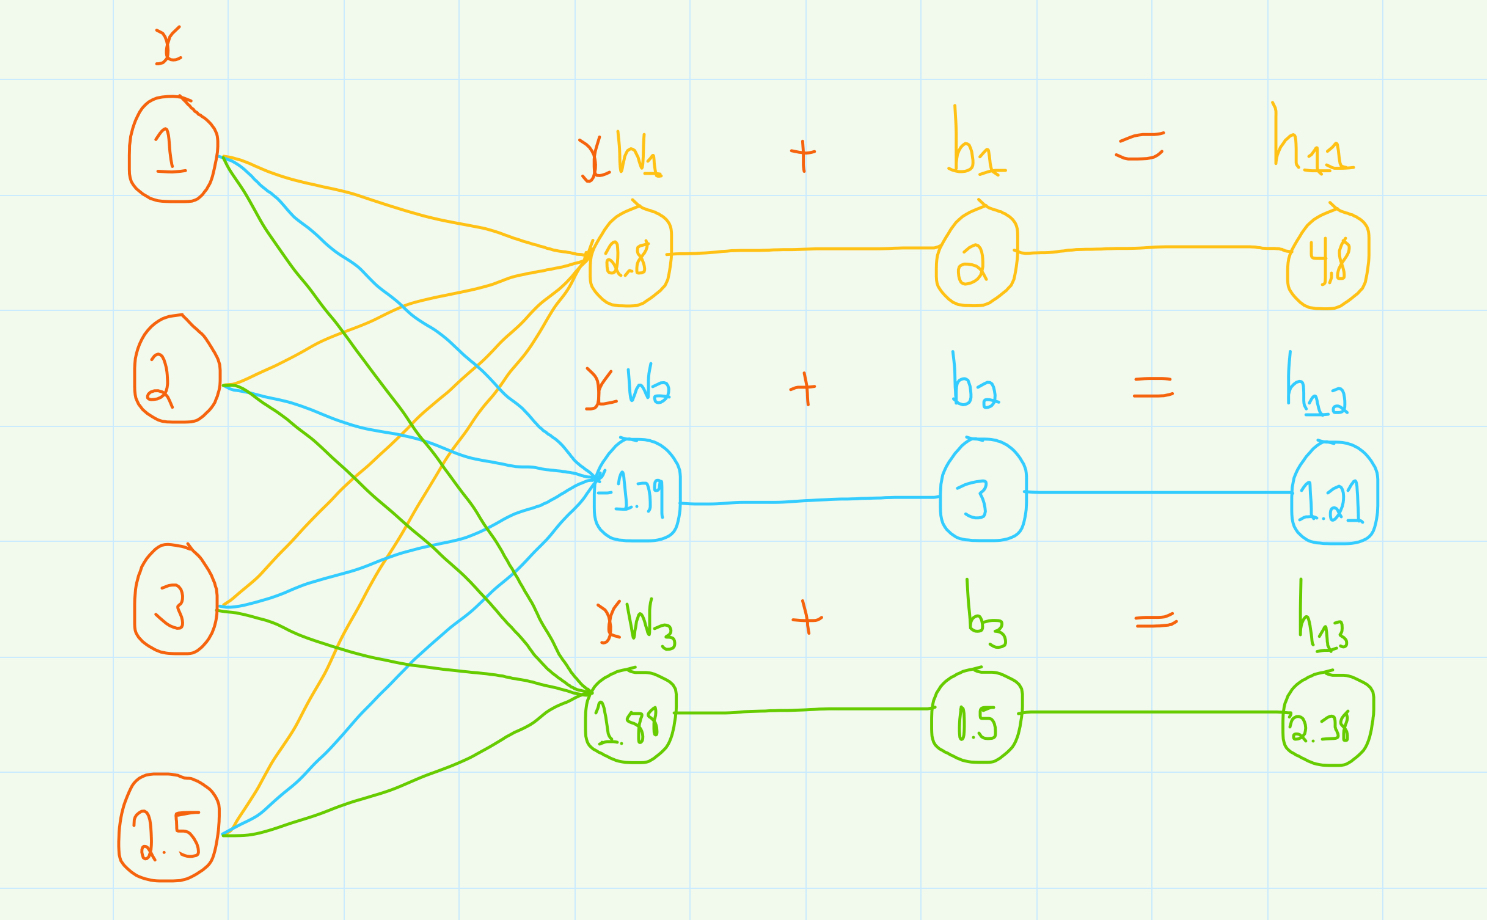 x
1
xW1 + b1 = h11
2,8 2 4,8
2
xW2 + b2 = h12
-1.79 3 1.21
3
xW3 + b3 = h13
1.88 0.5 2.38
2.5